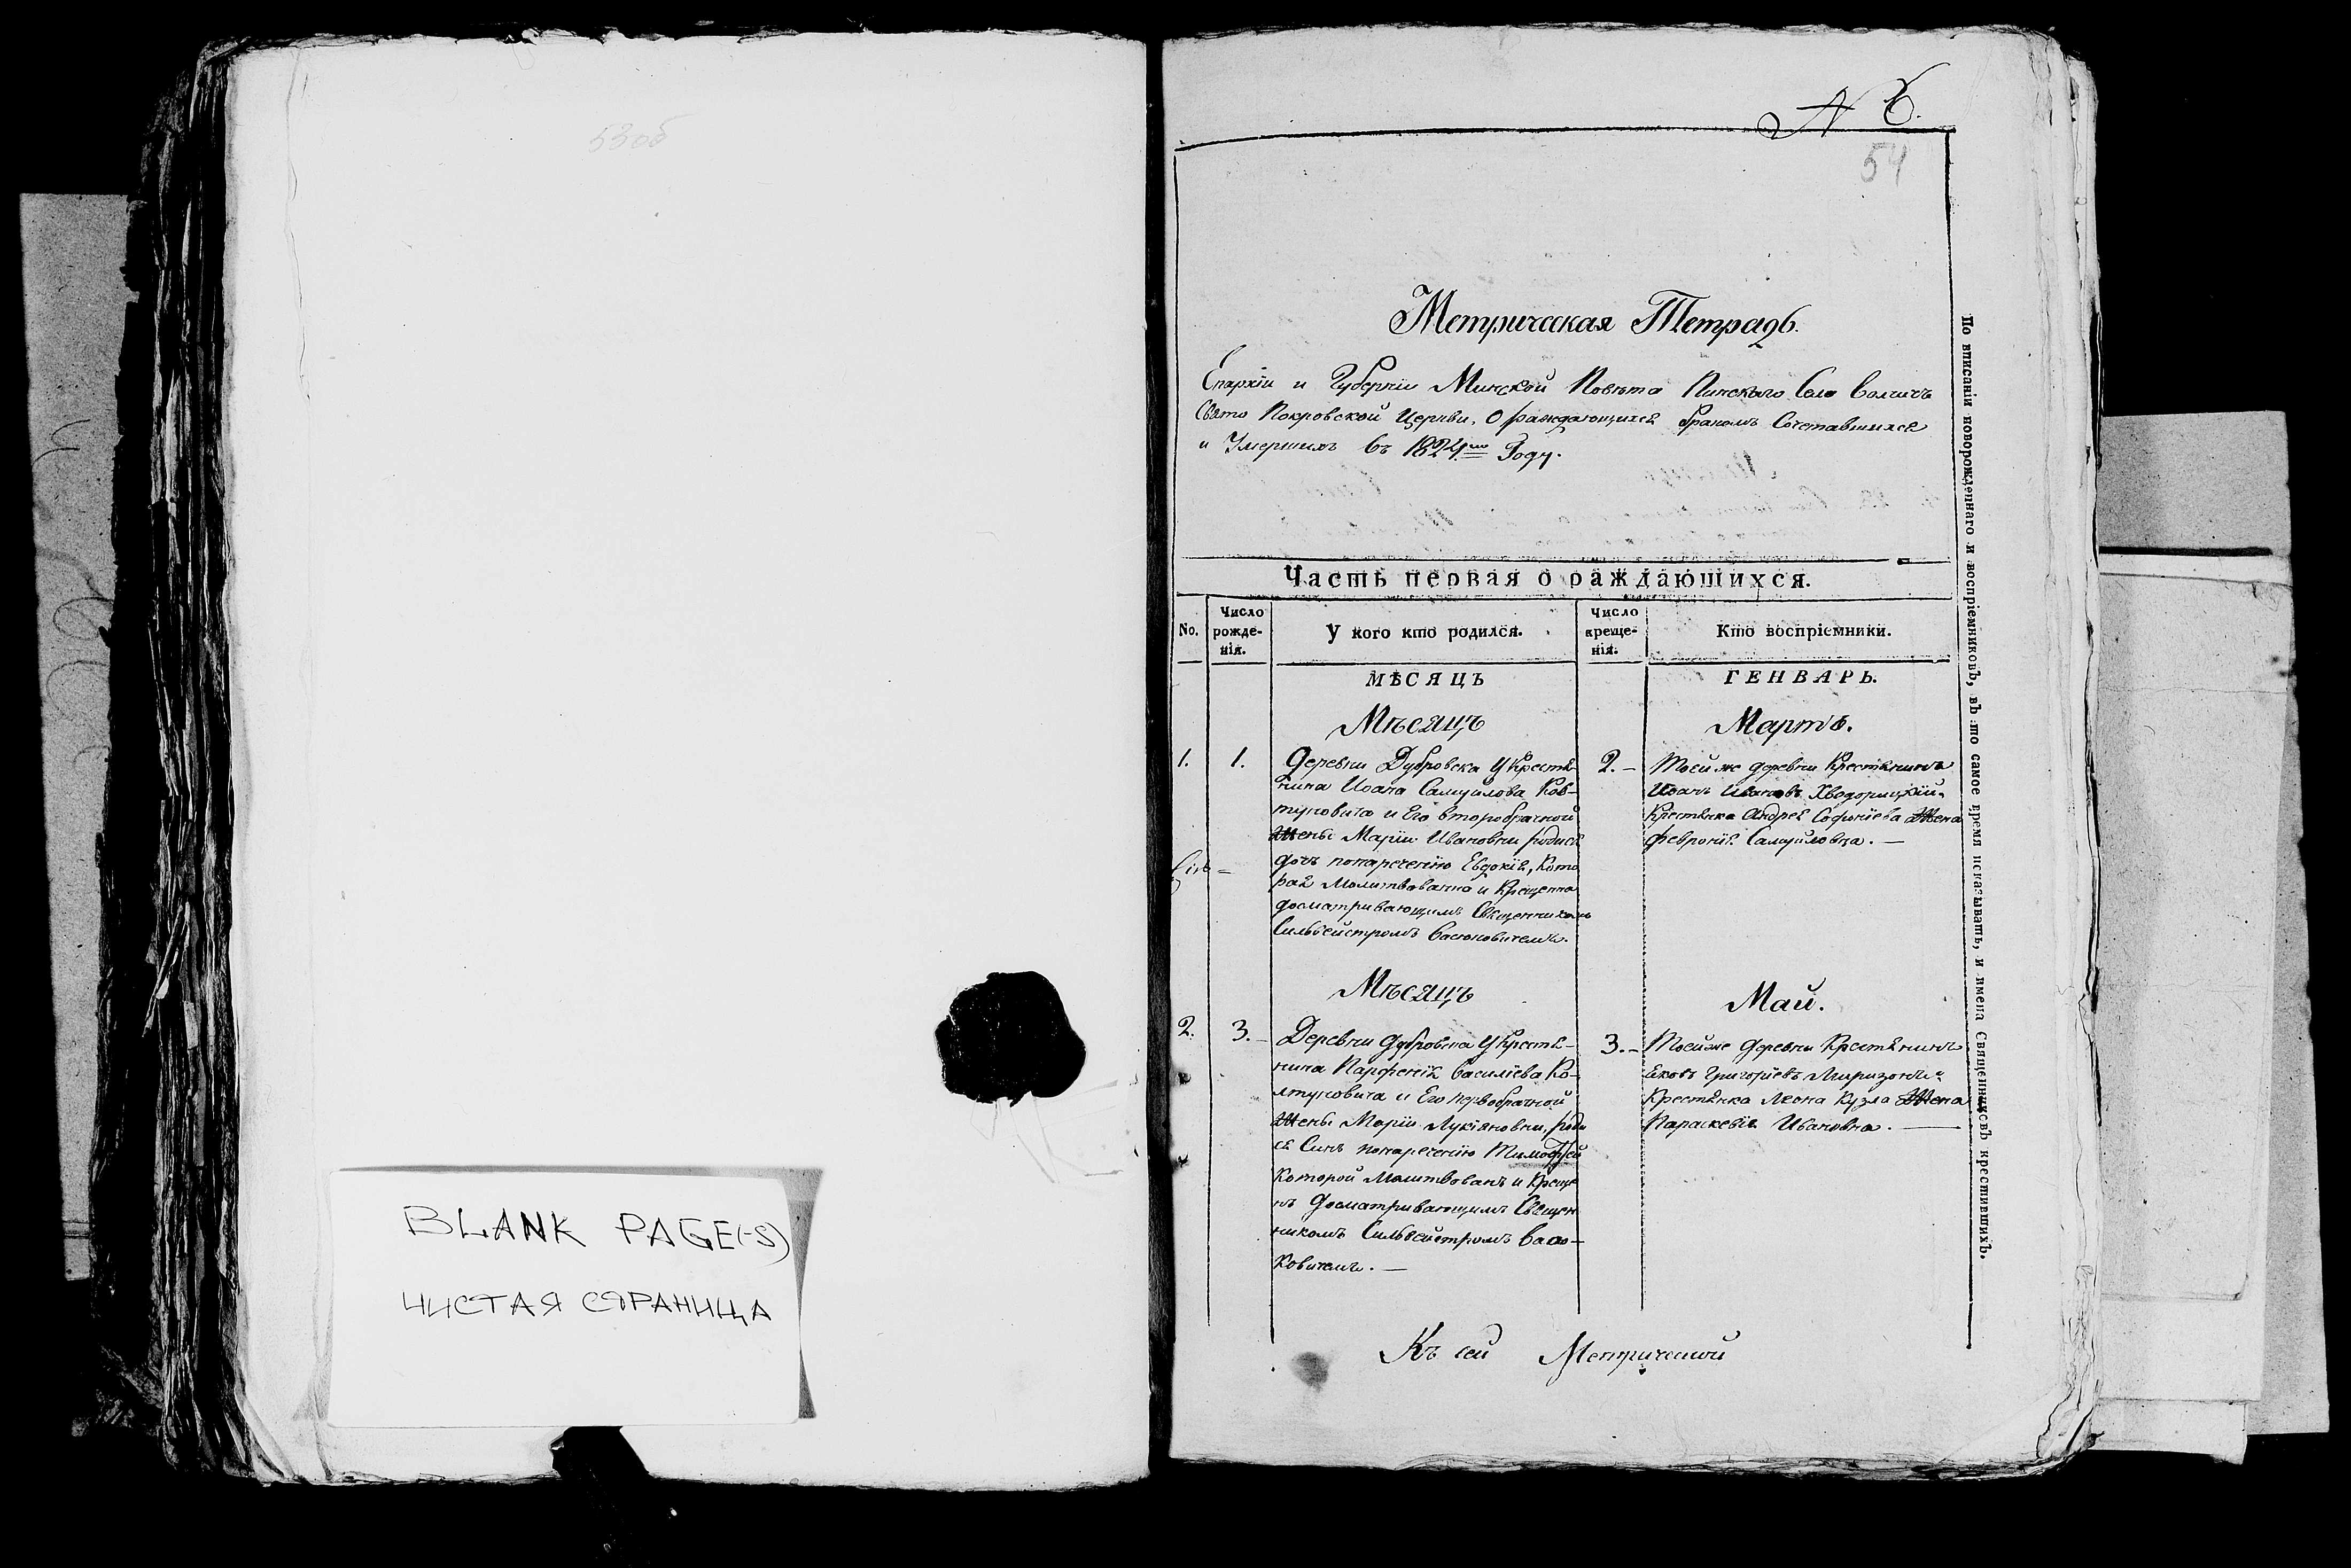 53об
BLANK PAGE(-S)
ЧИСТАЯ СТРАНИЦА
54
Метрическая Тетрадь.
Епархіи и Губерніи Минской Повѣта Пинскаго Села Волчичъ
Свято Покровской Церкви, О раждающихся бракомъ Сочетавшихся
и Умершихъ Въ 1824мъ Году.
Часть первая о раждающихся.
No.
Число рожденія.
У кого кто родился.
Число крещенія.
Кто воспріемники.
МѢСЯЦЪ ГЕНВАРЬ.
Мѣсяцъ Мартъ.
1. 1.
Деревни Дубровска У Крестя-
нина Иоана Самуилова Ков-
туновича и Его второбрачной
Жены Маріи Ивановны родися
дочь понареченію Евдокія, Кото
рая Молитвованна и Крещенна
досматривающимъ Священникомъ
Сильвейстромъ Васюковичемъ.
2. –
Тоей же деревни Крестянинъ
Иоанъ Ивановъ
Крестянка Андрея Софоніева Жена
Февронія Самуиловна. —
Мѣсяцъ Май.
2. 3. –
Деревни Дубровска У Крестя-
нина Парфенія Василіева Ко-
лтуновича и Его первобрачной
Жены Маріи Лукіяновны, роди
ся Синъ понареченію Тимофей
Которой Молитвованъ и Креще
нъ Досматривающимъ Священ
никомъ Сильвейстромъ Васю-
ковичемъ. —
3. –
Тоейже Деревни Крестянинъ
Яковъ Григоріевъ
Крестянка Леона Кузла Жена
Параскевія Ивановна. —
Къ сей Метрической
По вписаніи новорожденнаго и воспріемниковъ, въ то самое время исказывать, и имена Священниковъ крестившихъ.